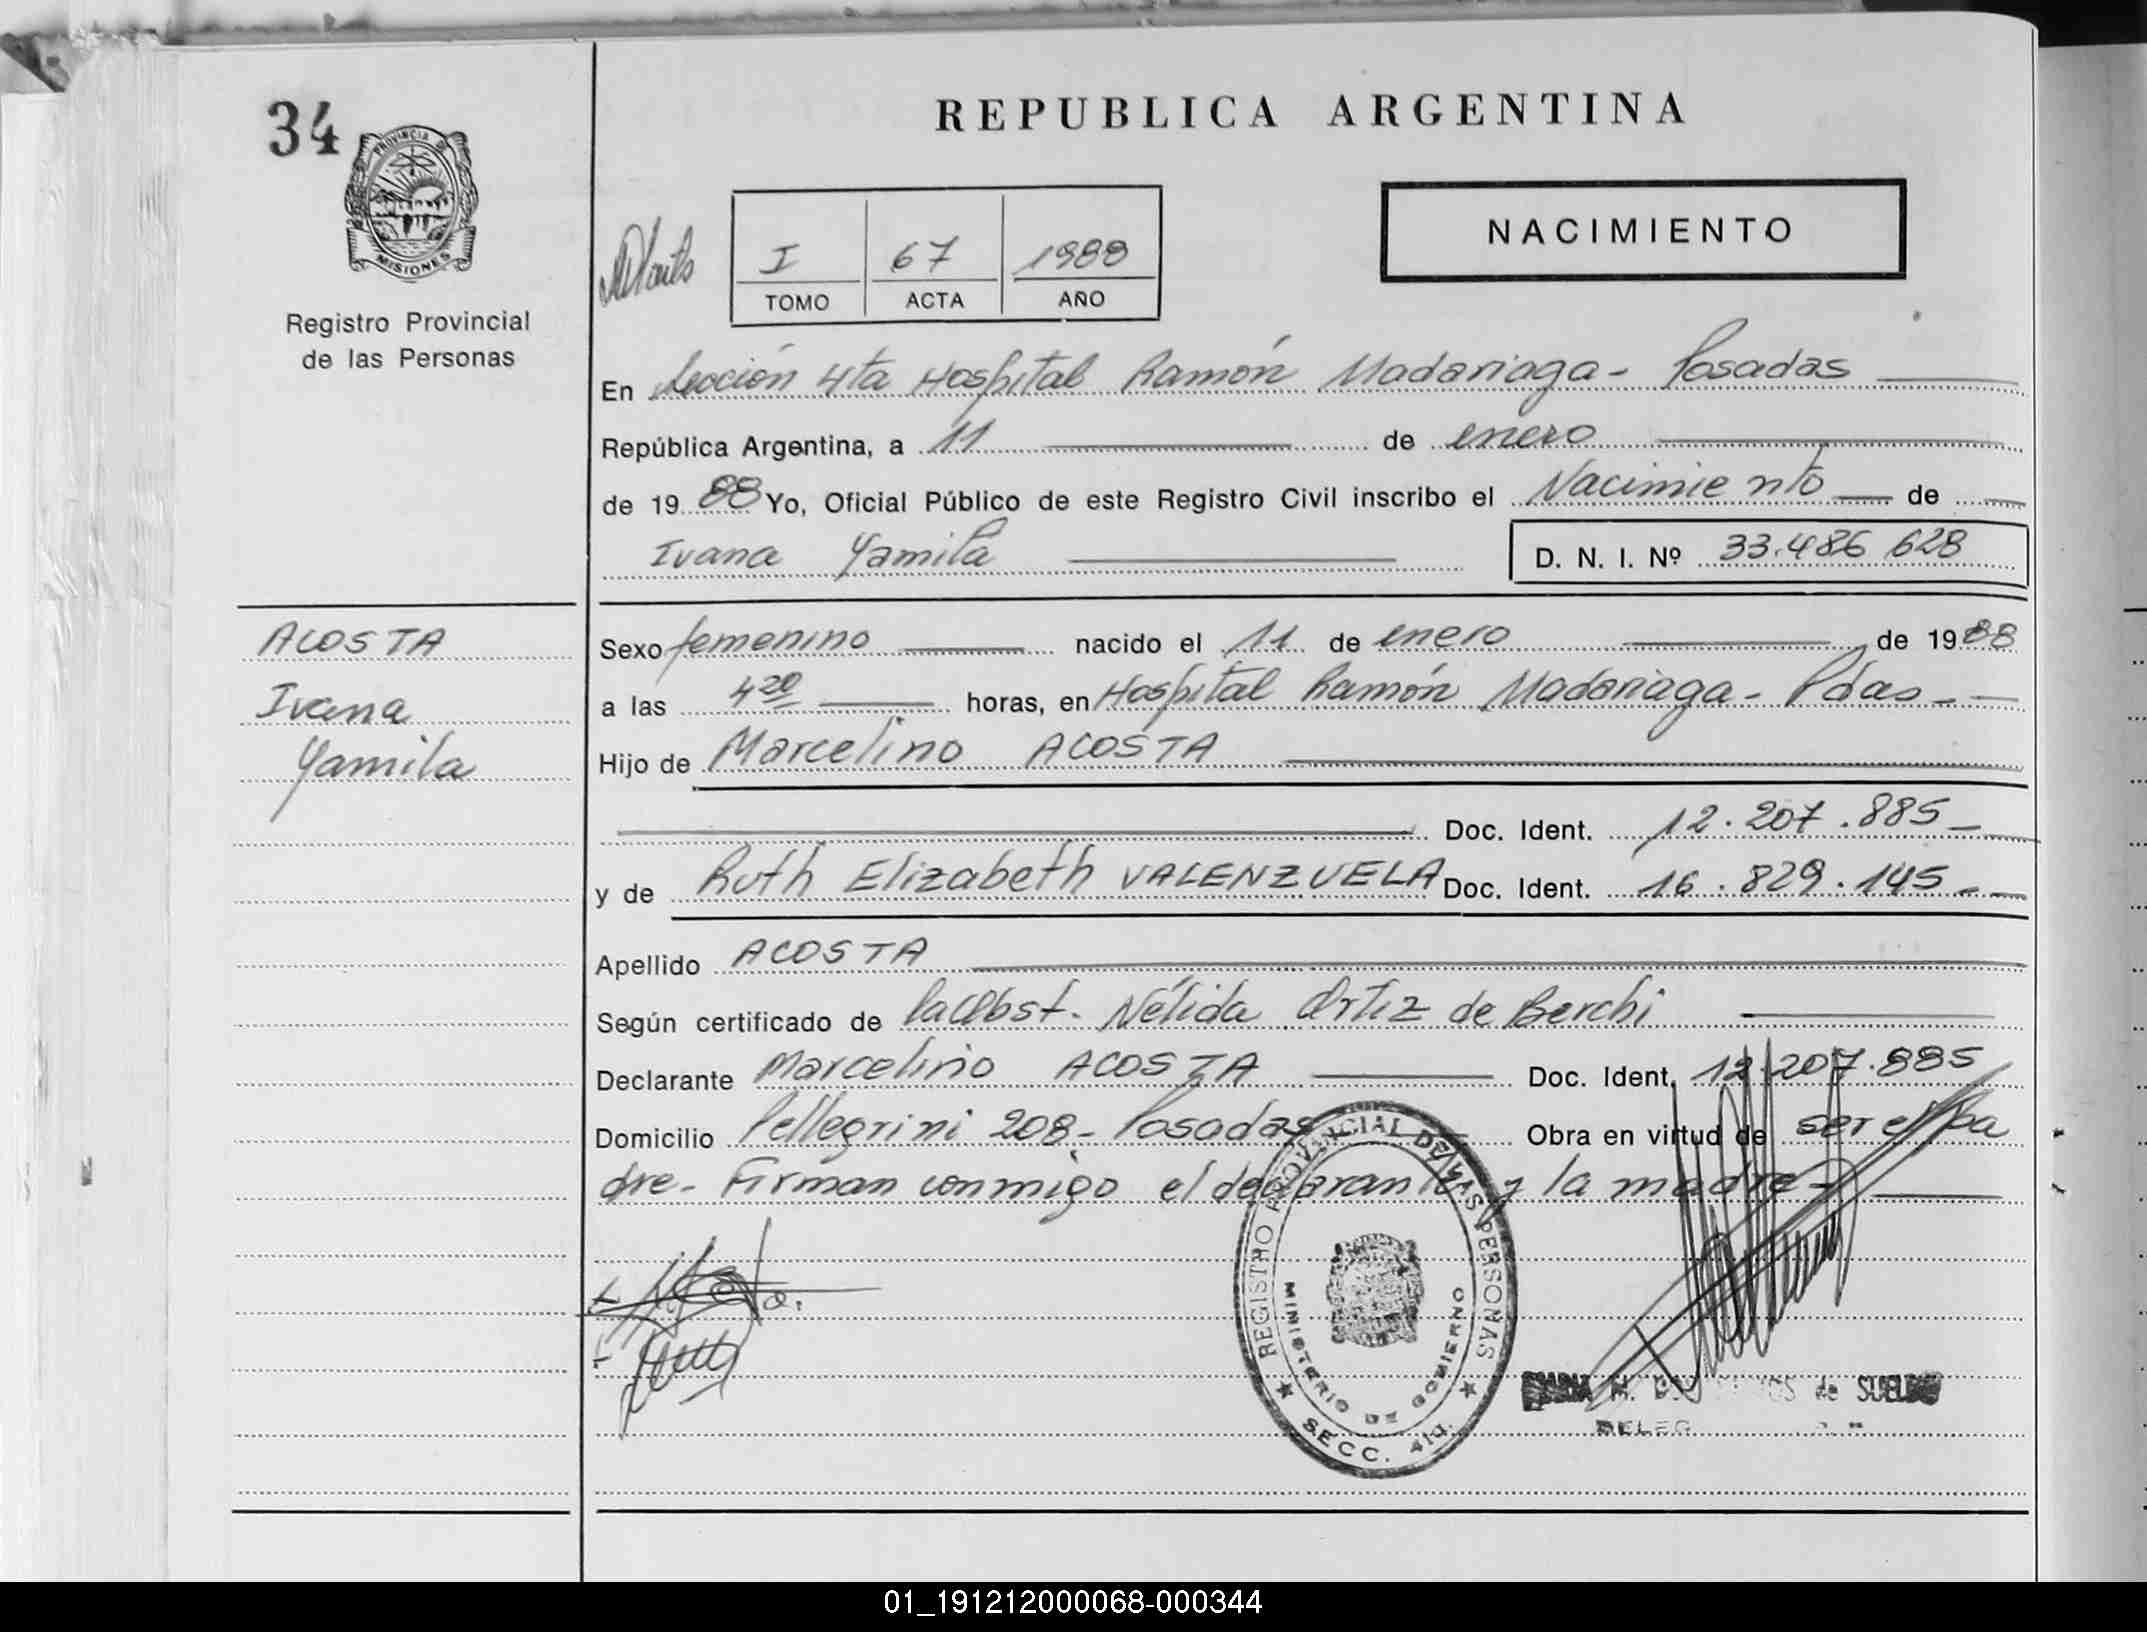 34
PROVINCIA DE
MISIONES
Registro Provincial
de las Personas
REPUBLICA ARGENTINA
NACIMIENTO
I 67 1988
TOMO ACTA AÑO
En Sección 4ta Hospital Ramón Madariaga - Posadas
República Argentina, a 11 de enero
de 1988 Yo, Oficial Público de este Registro Civil inscribo el Nacimiento de
Ivana Yamila D. N. I. Nº 33.486 628
ACOSTA
Ivana
Yamila
Sexo femenino nacido el 11 de enero de 1988
a las 4 20 horas, en Hospital Ramón Madariaga - Pdas -
Hijo de Marcelino ACOSTA
Doc. Ident. 12.207.885 -
y de Ruth Elizabeth VALENZUELA Doc. Ident. 16.829.145 -
Apellido ACOSTA
Según certificado de la Obst. Nélida Ortiz de Berchi
Declarante Marcelino ACOSTA Doc. Ident. 12.207.885
Domicilio Pellegrini 208 - Posadas Obra en virtud de ser el pa
dre - Firman conmigo el declarante y la madre -
REGISTRO PROVINCIAL DE LAS PERSONAS
MINISTERIO DE GOBIERNO
SECC. 4ta.
de SUELDO
01_191212000068-000344